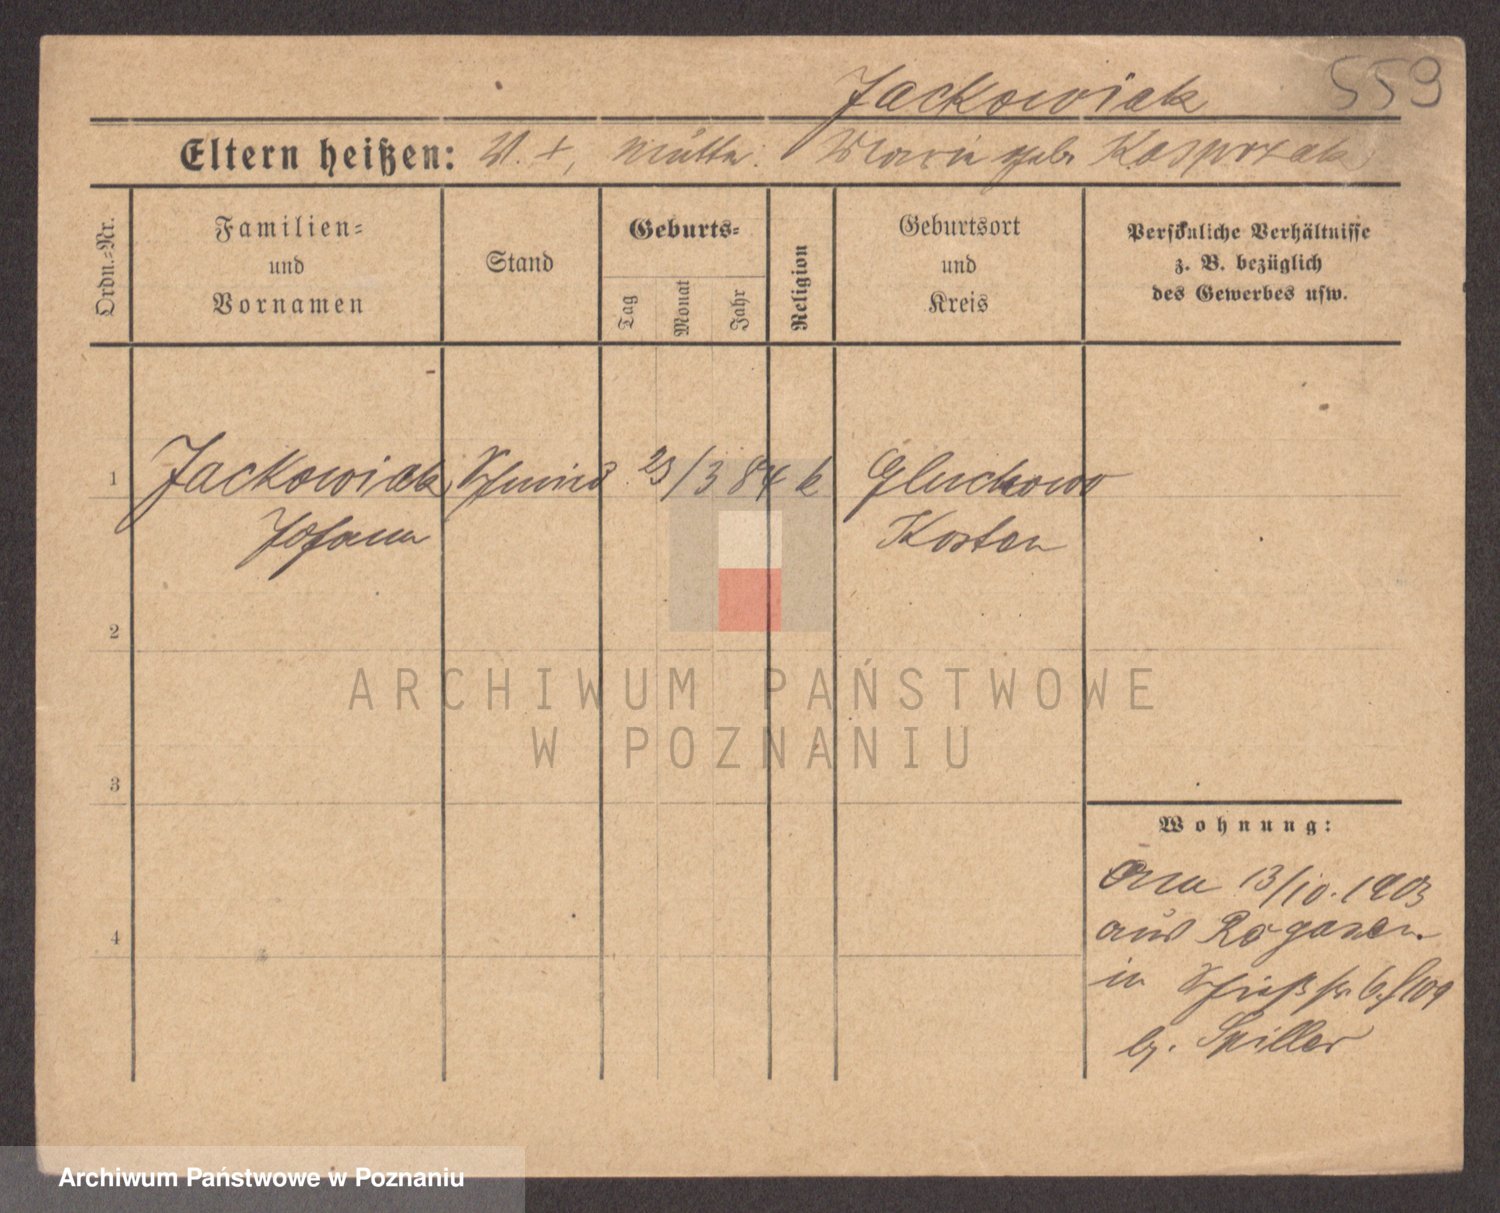 559
Jackowiak
Eltern heißen: V. +, Mutter: Marie geb. Kasprzak
Ordn.-Nr.
Familien-
und
Vornamen
Stand
Geburts-
Tag
Monat
Jahr
Religion
Geburtsort
und
Kreis
Persönliche Verhältnisse
z. B. bezüglich
des Gewerbes usw.
1 Jackowiak Schmied 23/3 84 k Gluchowo
Johann Kosten
2
ARCHIWUM PAŃSTWOWE
W POZNANIU
3
Wohnung:
13/10. 1903
aus Rogasen
in Schießstr. 6
4
b. Spiller
Archiwum Państwowe w Poznaniu